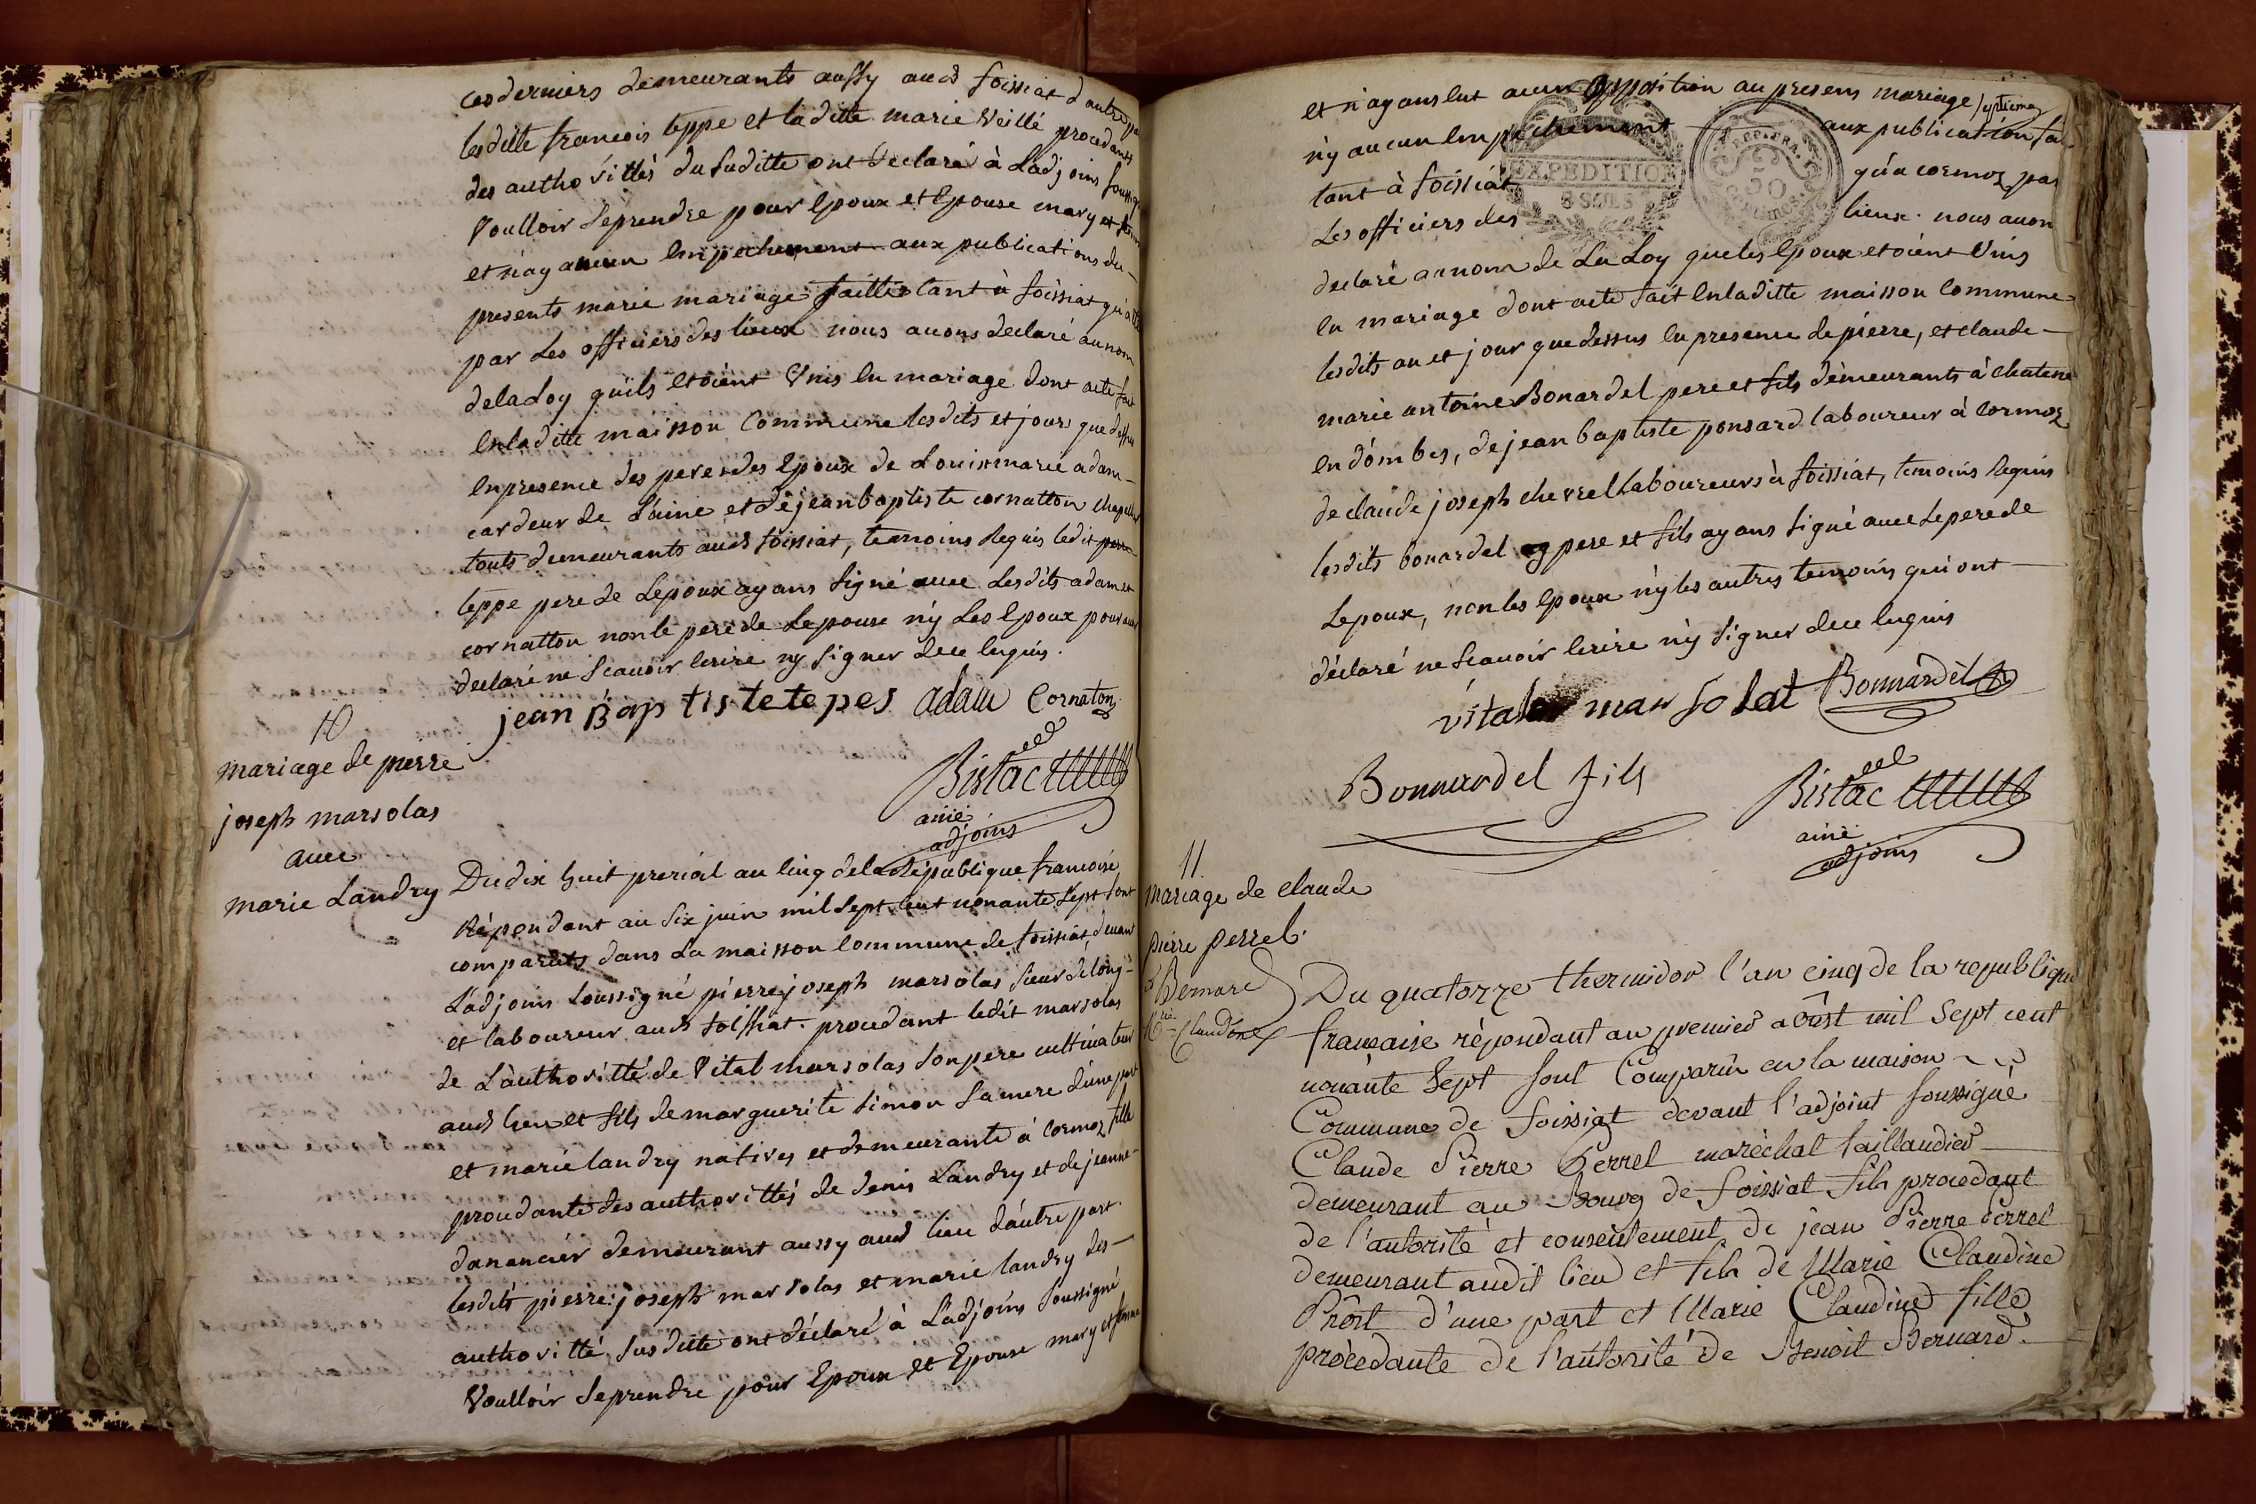 ces derniers demeurants aussy aud foissiat d'autre
lesditte francois teppe et laditte marie Veillé procedants
des authorittés du suditte ont declaré à Ladjoins
Voulloir seprendre pour Epoux et Epouse mary et
et n'ay aucun Empechement aux publications du
presents marie mariage faittes tant à foissiat qu'a
par Les officiers des lieux nous avons declaré au nom
delaLoy quils etoient Unis en mariage dont acte fait
Enladitte maison Commune lesdits et jour que dessus
Enpresence des peres des Epoux de Louis marie adam
cardeur de Laine et de jean baptiste cornatton
touts demeurants aud foissiat, temoins Requis ledit pere
teppe pere de Lepoux ayans signé avec Lesdits adam et
cornatton non le pere de Lepouse n'y Les Epoux pour avoir
declaré ne scavoir Ecrire ny signer dece Enquis.
jean Bap tis te te pes adam Cornaton
Bistac
ainé
adjoins
10
mariage de pierre
joseph marsolas
avec
marie Landry
Du dix huit prerial an cinq delaRépublique francoise
Répondant au six juin mil sept cent nonante sept sont
comparuts dans La maison Commune de foissiat, devant
L'adjoins soussigné pierre joseph marsolas
et laboureur aud foissiat. procedant ledit marsolas
de L'authoritté de Vital marsolas son pere cultivateur
aud lieu et fils de marguerite simon sa mere d'une part
et marie landry natives et demeurante à Cormoz fille
procedante des authorittés de denis Landry et de jeanne
dananciér demeurant aussy aud lieu d'autre part.
lesdits pierre joseph marsolas et marie landry des
authoritté susditte ont déclaré à L'adjoins soussigné
Voulloir seprendre pour Epoux et Epouse mary et femme
et n'ayans Eut aucun opposition au presens mariage
n'y aucun Empechement aux publication
tant à foissiat qu'a cormoz par
Les officiers des lieux. nous avon
EXPEDITION
8 SOLS
50
declaré aunom de La Loy queles Epoux etoient Unis
En mariage dont acte fait Enladitte maison Commune
lesdits an et jour que dessus En presence de pierre, et claude
marie antoine Bonardel pere et fils demeurants à chatene
En dombes, de jean baptiste ponsard laboureur à Cormoz
de claude joseph chevrel Laboureurs à foissiat, temoins Requis
lesdits bonardel pere et fils ayans signé avec le pere de
Lepoux, non les Epoux n'y les autres temoins qui ont
déclaré ne scavoir Ecrire n'y signer dece Enquis
vital marsolat Bonnardel
Bonnardel fils
Bistac
ainé
adjoins
11
Mariage de claude
pierre perrel.
Bernard
Claudine
Du quatorze thermidor l'an cinq de la republique
française répondant au premier août mil sept cent
nonante Sept sont Comparûs en la maison
Commune de foissiat devant l'adjoint soussigné
Claude Pierre Perrel maréchal taillandier
demeurant au Bourg de foissiat fils procedant
de l'autorité et consentement de jean Pierre Perrel
demeurant audit lieu et fils de Marie Claudine
Prôst d'une part et Marie Claudine fille
procedante de l'autorité de Benoit Bernard.